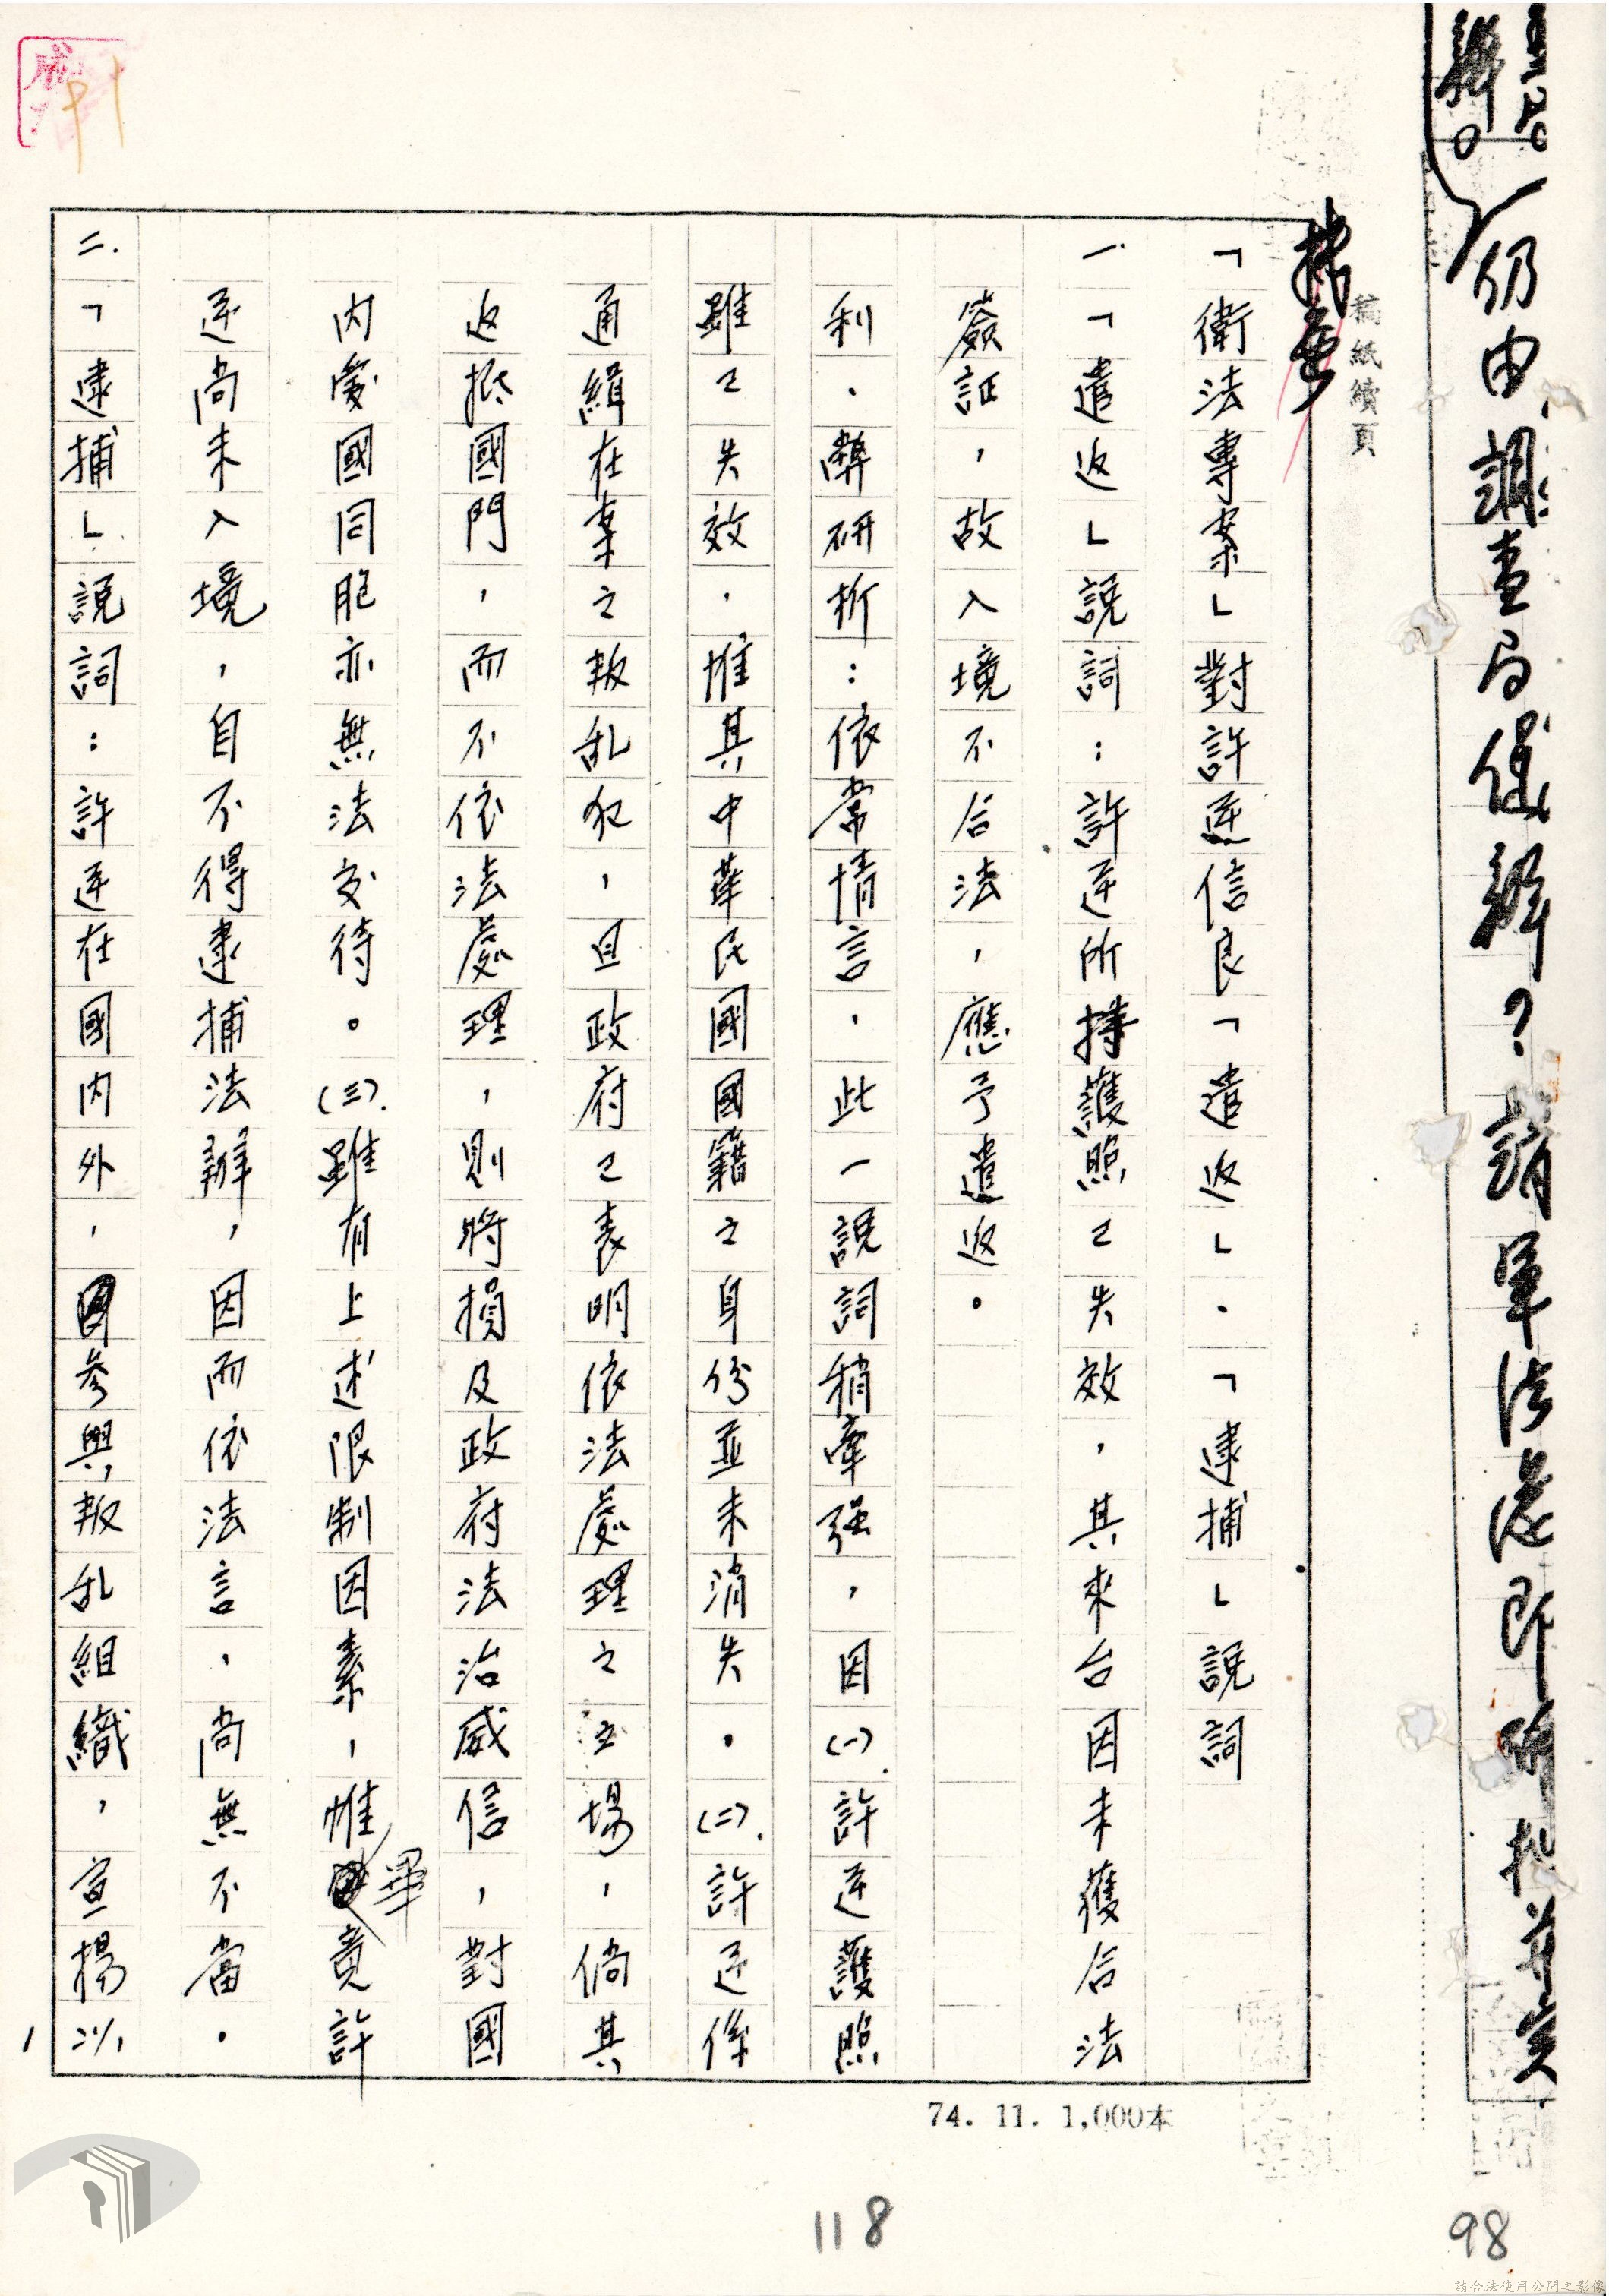 仍由調查局偵辦？請軍法處即時批並
稿紙續頁
「衛法專案」對許逆信良「遣返」、「逮捕」說詞
一「遣返」說詞：許逆所持護照已失效，其來台因未獲合法
簽証，故入境不合法，應予遣返。
利、弊研析：依常情言，此一說詞稍牽强，因㈠.許逆護照
雖已失效，惟其中華民國國籍之身份並未消失。㈡.許逆係
通緝在案之叛乱犯，且政府已表明依法處理之立場，倘其
返抵國門，而不依法處理，則將損及政府法治威信，對國
內愛國同胞亦無法交待。㈢.雖有上述限制因素，惟畢竟許
逆尚未入境，自不得逮捕法辦，因而依法言，尚無不當。
二.「逮捕」說詞：許逆在國內外，參與叛乱組織，宣揚以
74. 11. 1,000本
118
98
請合法使用公開之影像